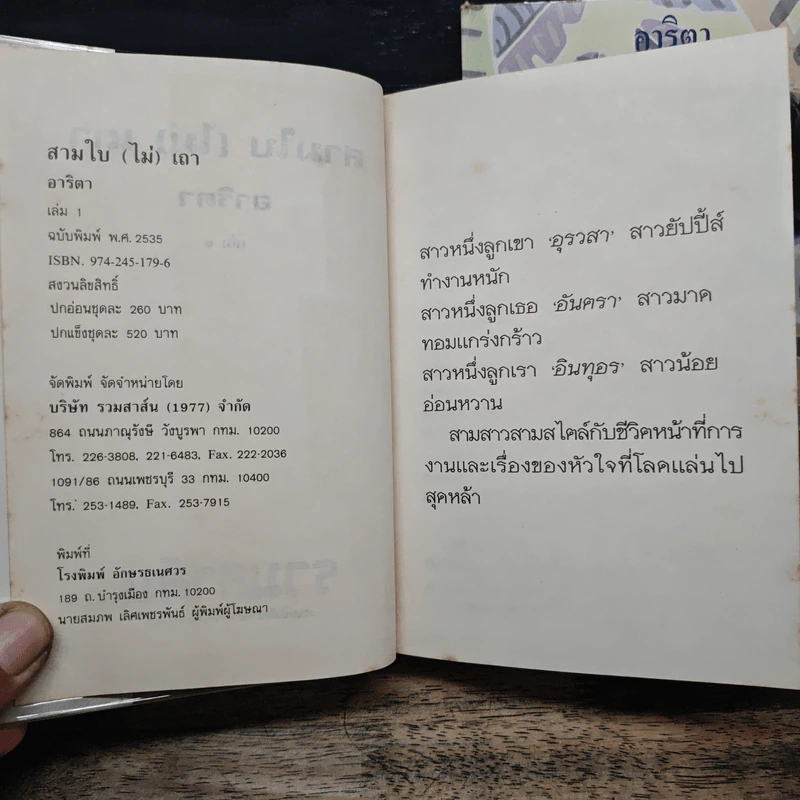 สามใบ (ไม่) เถา
อาริตา
เล่ม 1
ฉบับพิมพ์ พ.ศ. 2535
ISBN. 974-245-179-6
สงวนลิขสิทธิ์
ปกอ่อนชุดละ 260 บาท
ปกแข็งชุดละ 520 บาท
จัดพิมพ์ จัดจำหน่ายโดย
บริษัท รวมสาส์น (1977) จำกัด
864 ถนนภาณุรังษี วังบูรพา กทม. 10200
โทร. 226-3808, 221-6483, Fax. 222-2036
1091/86 ถนนเพชรบุรี 33 กทม. 10400
โทร. 253-1489, Fax. 253-7915
พิมพ์ที่
โรงพิมพ์ อักษรธเนศวร
189 ถ.บำรุงเมือง กทม. 10200
นายสมภพ เลิศเพชรพันธ์ ผู้พิมพ์ผู้โฆษณา
อาริตา
สาวหนึ่งลูกเขา ‘อุรวสา’ สาวยัปปี้ส์
ทำงานหนัก
สาวหนึ่งลูกเธอ ‘อันศรา’ สาวมาด
ทอมแกร่งกร้าว
สาวหนึ่งลูกเรา ‘อินทุอร’ สาวน้อย
อ่อนหวาน
สามสาวสามสไตล์กับชีวิตหน้าที่การ
งานและเรื่องของหัวใจที่โลดแล่นไป
สุดหล้า